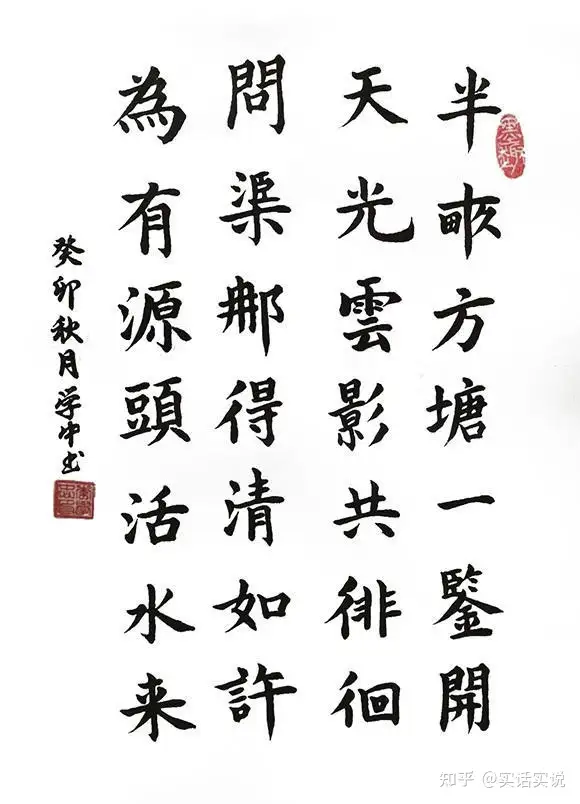 半畝方塘一鑒開
天光雲影共徘徊
問渠那得清如許
為有源頭活水来
癸卯秋月学中书
知乎 @实话实说